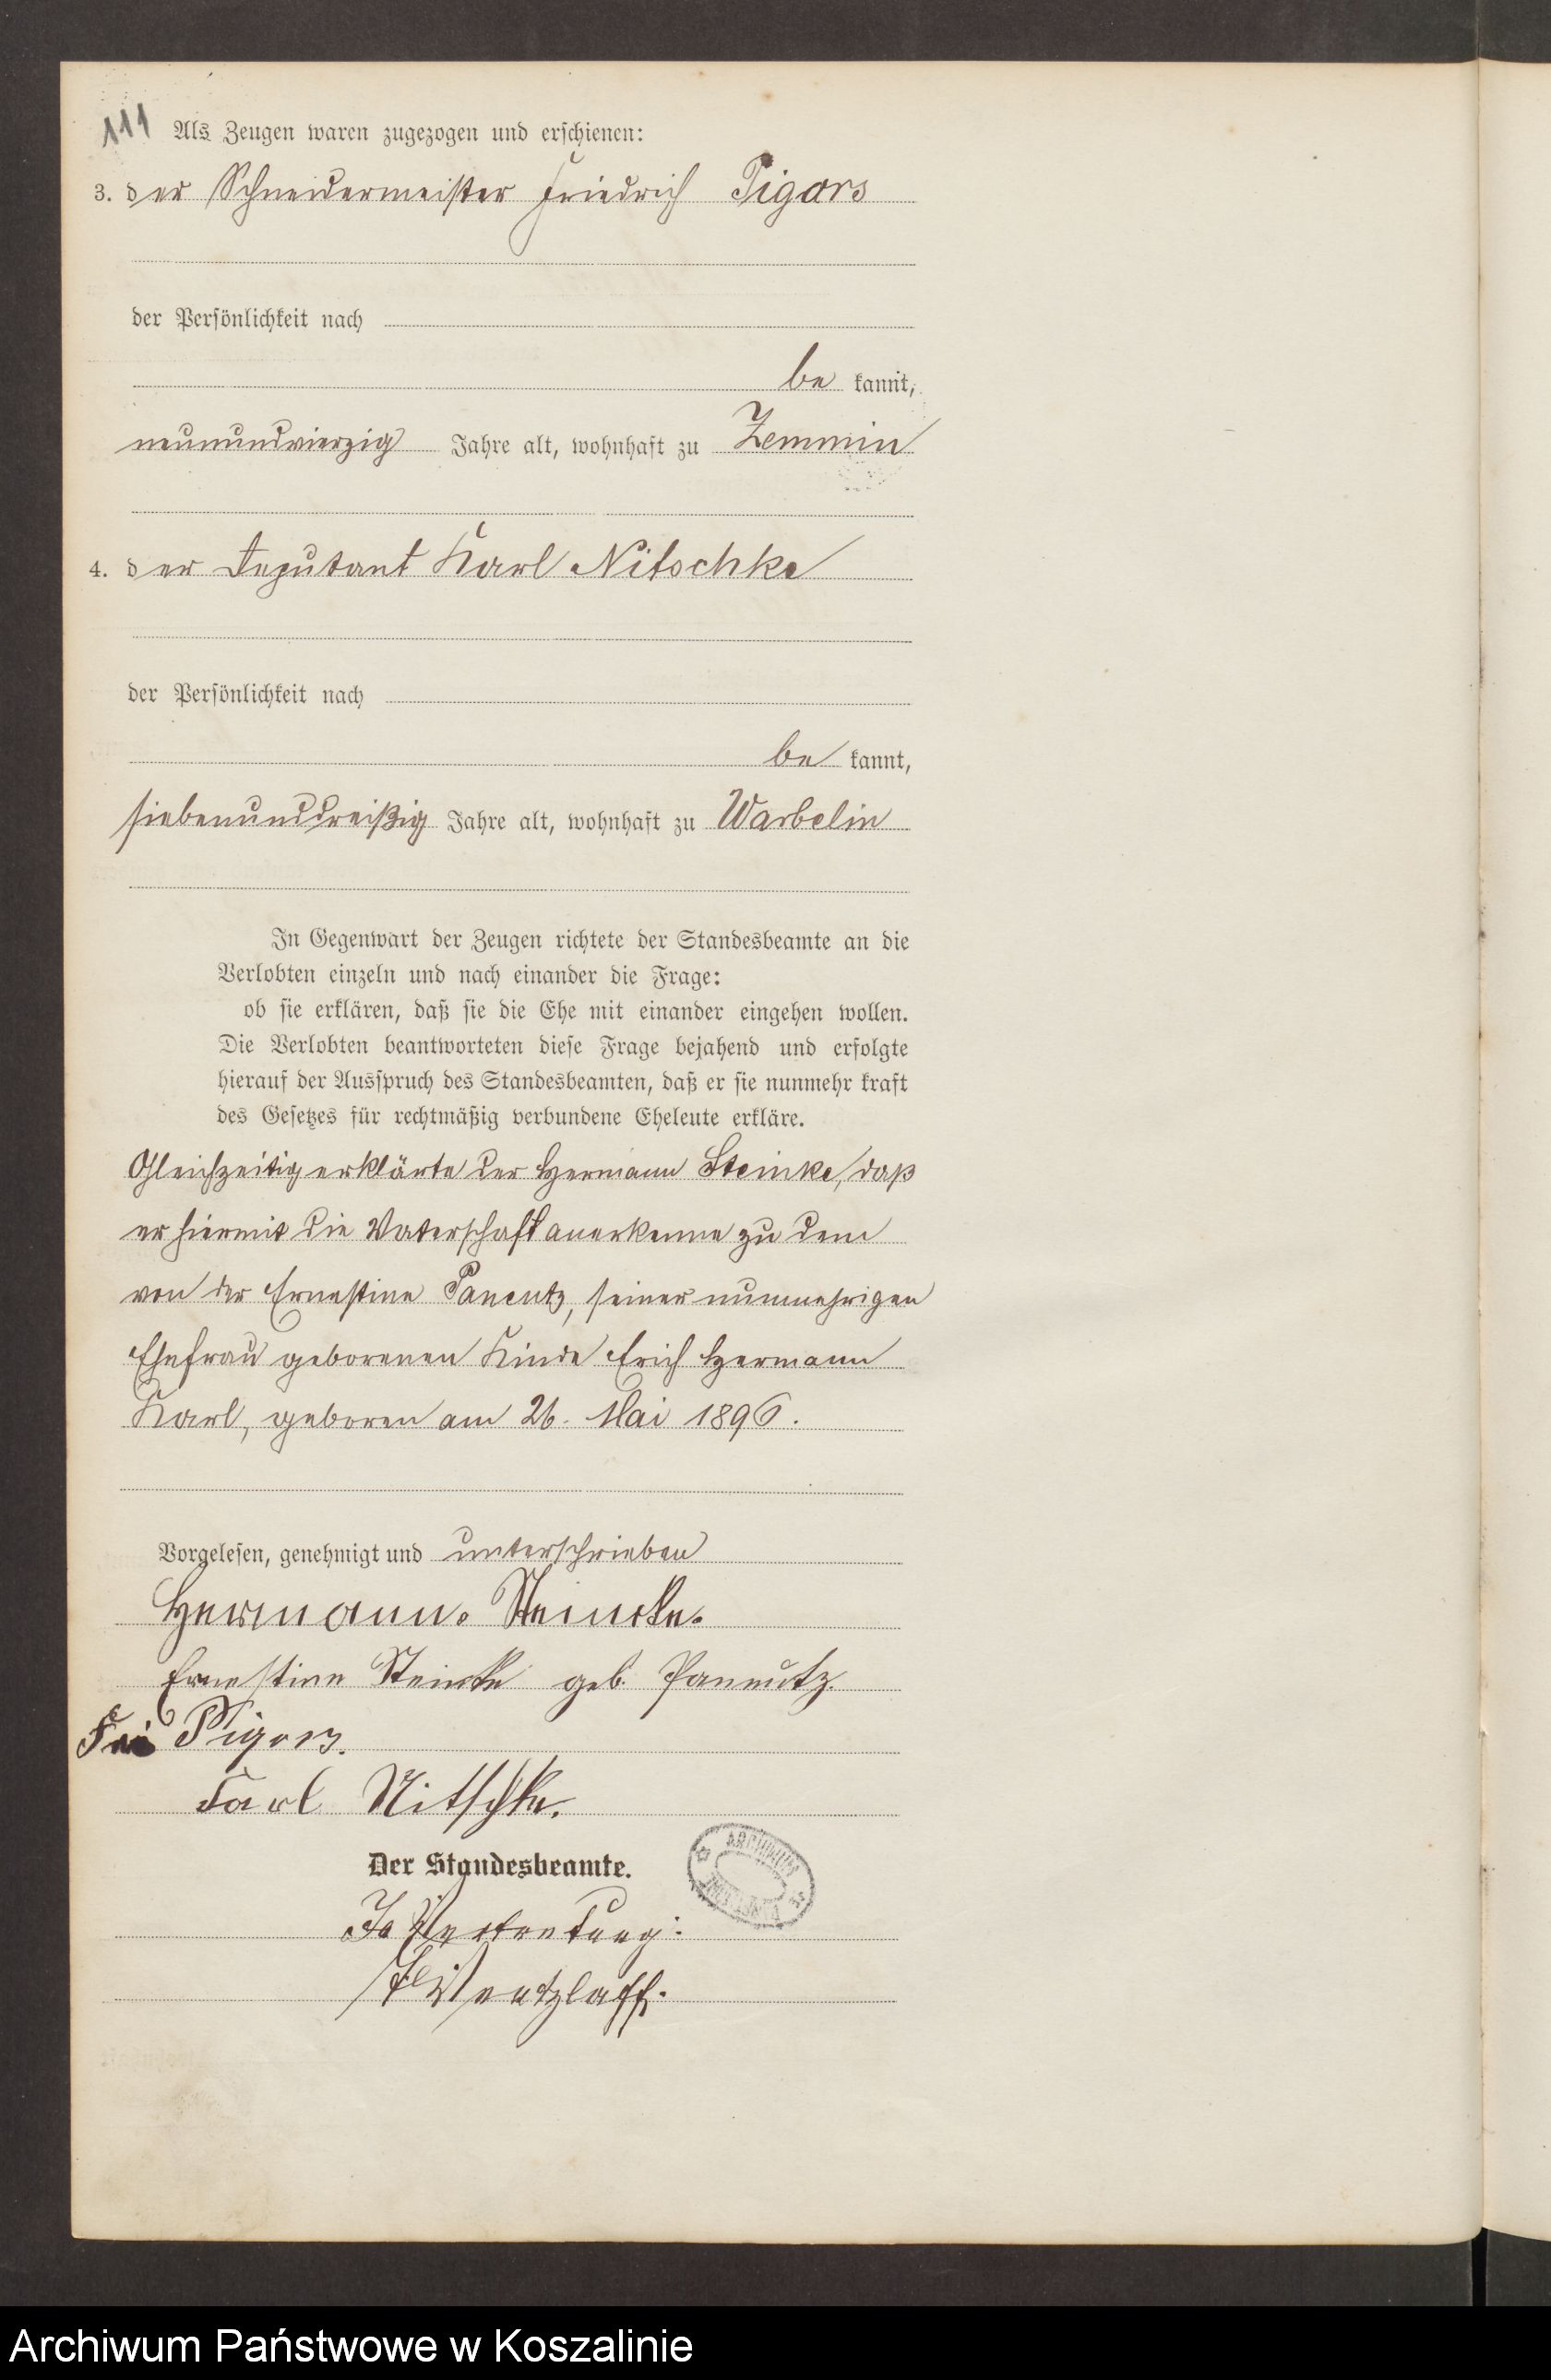 111 Als Zeugen waren zugezogen und erschienen:
3. der Schneidermeister Friedrich Pigors
der Persönlichkeit nach
be kannt,
neunundvierzig Jahre alt, wohnhaft zu Zemmin
4. der Deputant Karl Nitschke
der Persönlichkeit nach
be kannt,
siebenunddreißig Jahre alt, wohnhaft zu Warbelin
In Gegenwart der Zeugen richtete der Standesbeamte an die
Verlobten einzeln und nach einander die Frage:
ob sie erklären, daß sie die Ehe mit einander eingehen wollen.
Die Verlobten beantworteten diese Frage bejahend und erfolgte
hierauf der Ausspruch des Standesbeamten, daß er sie nunmehr kraft
des Gesetzes für rechtmäßig verbundene Eheleute erkläre.
Gleichzeitig erklärte der Hermann Steinke, daß
er hiermit die Vaterschaft anerkenne zu dem
von der Ernestine Panentz, seiner nunmehrigen
Ehefrau geborenen Kinde Erich Hermann
Karl, geboren am 26. Mai 1896.
Vorgelesen, genehmigt und unterschrieben
Hermann. Steincke.
Ernestine Steincke geb. Pannutz.
Pigors.
Karl Nitschke.
Der Standesbeamte.
In Vertretung:
Wentzlaff.
ARCHIWUM
Archiwum Państwowe w Koszalinie